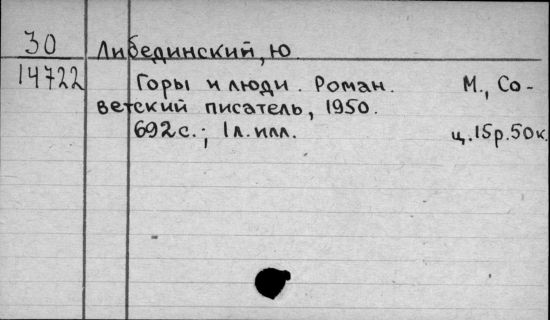 30 Либединский, Ю
14722 Горы и люди. Роман. М., Со-
ветский писатель, 1950.
692 с.; 1 л. илл. ц. 15 р. 50 к.